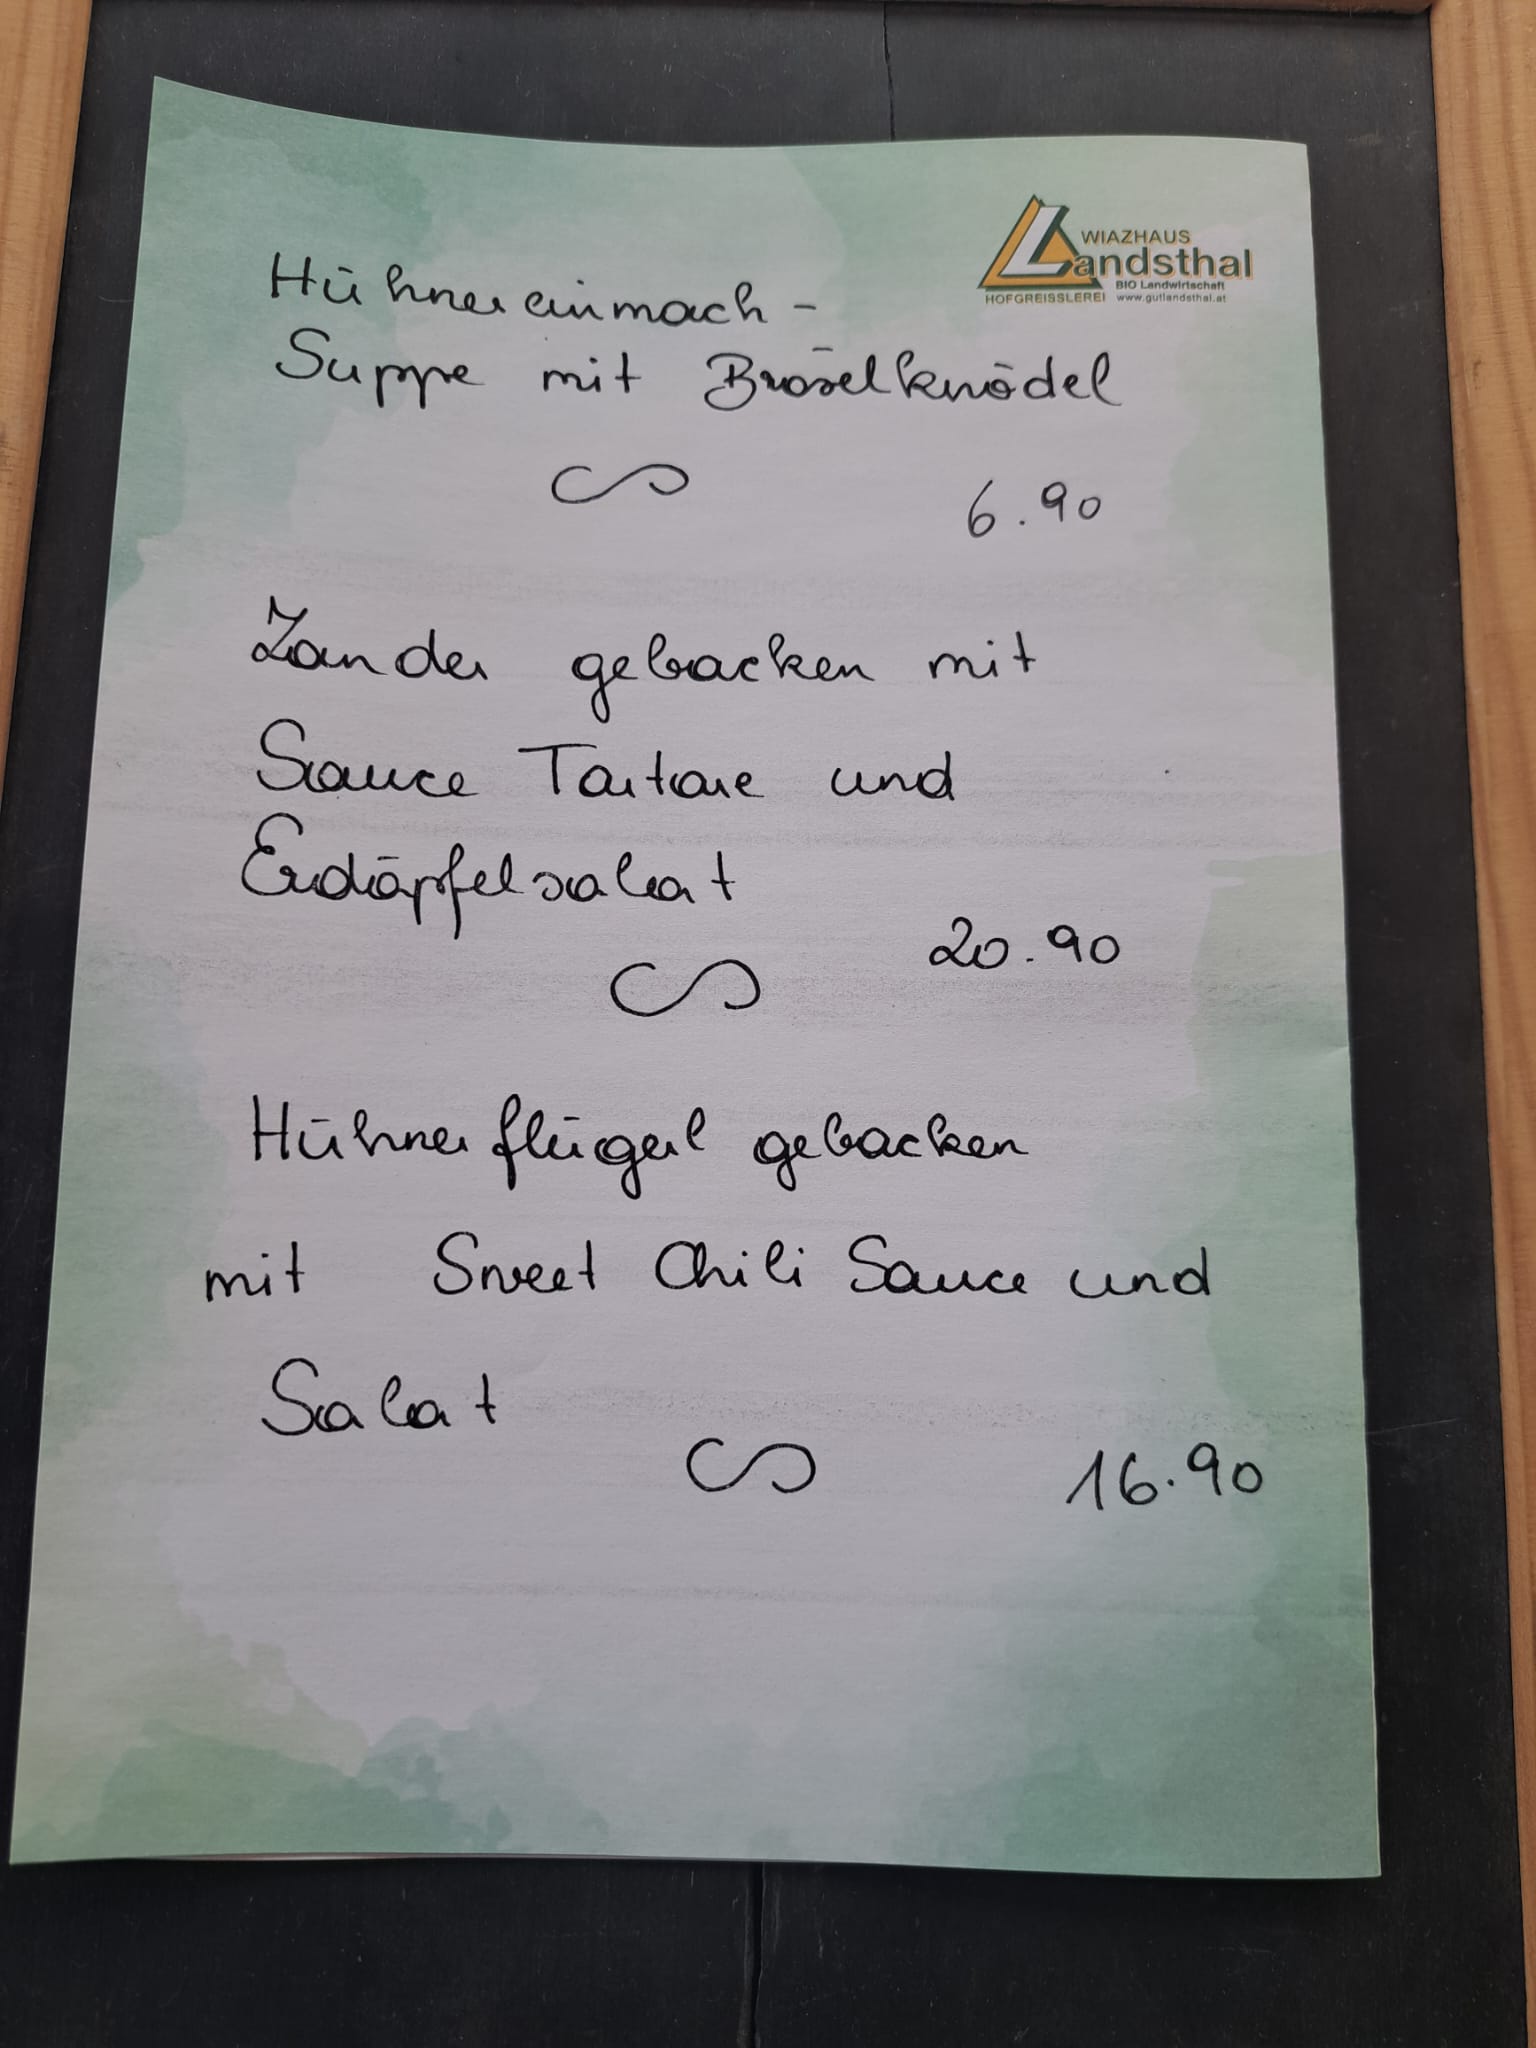 WIAZHAUS
Landsthal
BIO Landwirtschaft
HOFGREISSLEREI www.gutlandsthal.at
Hühnereinmach-
Suppe mit Bröselknödel
6.90
Zander gebacken mit
Sauce Tartare und
Erdäpfelsalat
20.90
Hühnerflügerl gebacken
mit Sweet Chili Sauce und
Salat
16.90